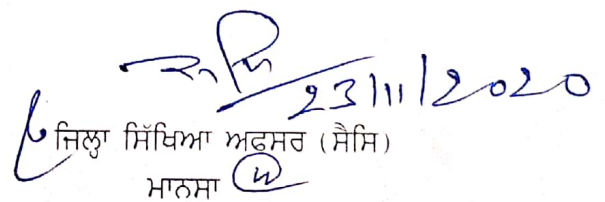 23/11/2020
ਜਿਲ੍ਹਾ ਸਿੱਖਿਆ ਅਫਸਰ (ਸੈਸਿ)
ਮਾਨਸਾ